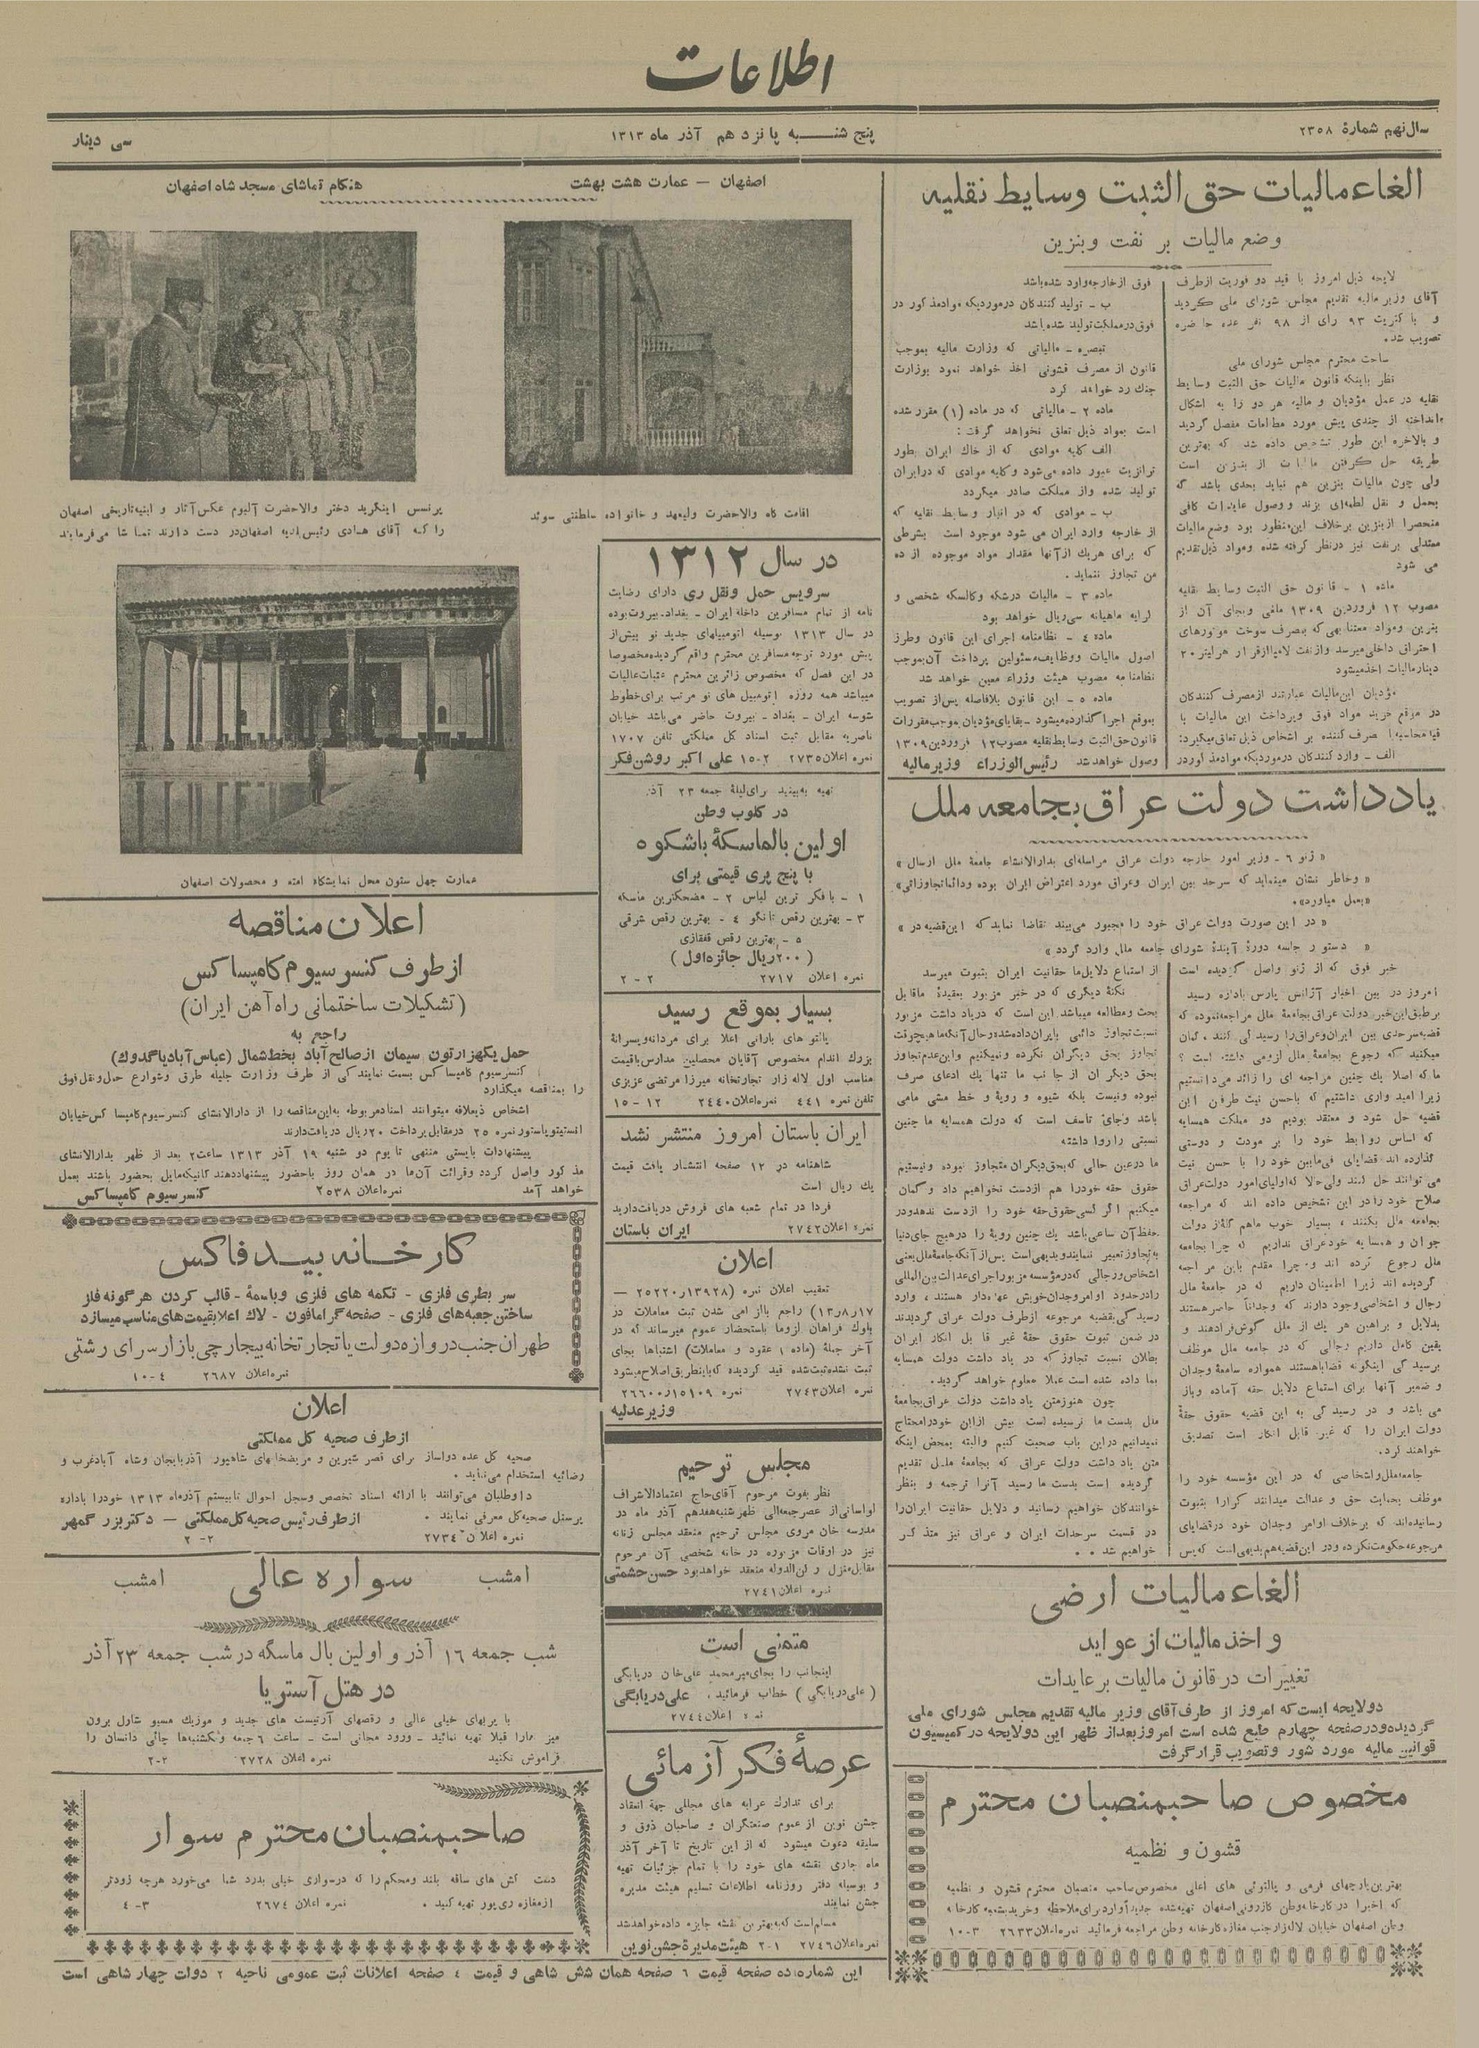 اطلاعات
سال نهم شمارهٔ ۲۳۵۸
پنج شنبه پانزدهم آذر ماه ۱۳۱۳
سی دینار
الغاء مالیات حق الثبت وسایط نقلیه
وضع مالیات بر نفت وبنزین
لایحه ذیل امروز با قید دو فوریت ازطرف
آقای وزیر مالیه تقدیم مجلس شورای ملی گردید
و با کثریت ۹۳ رای از ۹۸ نفر عده حاضره
تصویب شد.
ساحت محترم مجلس شورای ملی
نظر باینکه قانون مالیات حق الثبت وسایط
نقلیه در عمل مؤدیان و مالیه هر دو را به اشکال
انداخته از چندی پیش مورد مطالعات مفصل گردید
و بالاخره این طور تشخیص داده شد که بهترین
طریقه حل گرفتن مالیات از بنزین است
ولی چون مالیات بنزین هم نباید بحدی باشد که
بحمل و نقل لطمه‌ای بزند و وصول عایدات کافی
منحصرا ازبنزین برخلاف این منظور بود وضع مالیات
معتدلی برنفت نیز درنظر گرفته شده ومواد ذیل تقدیم
می شود
ماده ۱ - قانون حق الثبت وسایط نقلیه
مصوب ۱۲ فروردین ۱۳۰۹ ملغی وبجای آن از
بنزین ومواد مشابهی که بمصرف سوخت موتورهای
احتراق داخلی میرسد وازنفت لامپا ازقرار هرلیتر ۲۰
دینار مالیات اخذ میشود
مؤدیان این مالیات عبارتند ازمصرف کنندگان
در موقع خرید مواد فوق وپرداخت این مالیات با
قیمت صرف کننده بر اشخاص ذیل تعلق میگیرد:
الف - وارد کنندگان درموردیکه مواد مذکور در
فوق از خارجه وارد شده باشد
ب - تولید کنندگان درموردیکه مواد مذکور در
فوق در مملکت تولید شده باشد
تبصره - مالیاتی که وزارت مالیه بموجب
قانون از مصرف قشونی اخذ خواهد نمود بوزارت
جنگ رد خواهد کرد
ماده ۲ - مالیاتی که در ماده (۱) مقرر شده
است بمواد ذیل تعلق نخواهد گرفت:
الف کلیه موادی که از خاك ایران بطور
ترانزیت عبور داده می‌شود وکلیه موادی که درایران
تولید شده واز مملکت صادر میگردد
ب - موادی که در انبار وسایط نقلیه که
از خارجه وارد ایران می شود موجود است بشرطی
که برای هریك ازآنها مقدار مواد موجوده از ده
من تجاوز ننماید.
ماده ۳ - مالیات درشکه وکالسکه شخصی و
کرایه ماهیانه سی ریال خواهد بود
ماده ٤ - نظامنامه اجرای این قانون وطرز
اصول مالیات ووظایف مسئولین پرداخت آن بموجب
نظامنامه مصوب هیئت وزراء معین خواهد شد
ماده ٥ - این قانون بلافاصله پس از تصویب
بموقع اجرا گذارده میشود - بقایای مؤدیان بموجب مقررات
قانون حق الثبت وسایط نقلیه مصوب ۱۲ فروردین ۱۳۰۹
وصول خواهد شد رئیس الوزراء وزیر مالیه
یادداشت دولت عراق بجامعه ملل
« ژنو ٦ - وزیر امور خارجه دولت عراق مراسله‌ای بدارالانشاء جامعهٔ ملل ارسال »
« وخاطر نشان مینماید که سرحد بین ایران وعراق مورد اعتراض ایران بوده ودائما تجاوزاتی »
«بعمل میاورد».
« در این صورت دولت عراق خود را مجبور می‌بیند تقاضا نماید که این قضیه در »
« دستور جلسه دورهٔ آیندهٔ شورای جامعه ملل وارد گردد »
خبر فوق که از ژنو واصل گردیده است
امروز در بین اخبار آژانس پارس باداره رسید
برطبق این خبر دولت عراق بجامعهٔ ملل مراجعه نموده که
قضیه سرحدی بین ایران وعراق را رسیدگی کنند، گمان
میکنید که رجوع بجامعهٔ ملل لزومی داشته است؟
ما که اصلا یك چنین مراجعه ای را زائد می‌دانستیم
زیرا امید واری داشتیم که باحسن نیت طرفین این
قضیه حل شود و معتقد بودیم دو مملکت همسایه
که اساس روابط خود را بر مودت و دوستی
گذارده اند قضایای فی‌مابین خود را با حسن نیت
می توانند حل کنند ولی حالا که اولیای امور دولت عراق
صلاح خود را در این تشخیص داده اند که مراجعه
بجامعه ملل بکنند، بسیار خوب ماهم گله از دولت
جوان و همسایه خود عراق نداریم که چرا بجامعه
ملل رجوع کرده اند و چرا مقدم باین مراجعه
گردیده اند زیرا اطمینان داریم که در جامعهٔ ملل
رجال و اشخاصی وجود دارند که وجداناً حاضر هستند
بدلایل و براهین هر یك از ملل گوش فرادهند و
یقین کامل داریم رجالی که در جامعه ملل موظف
برسیدگی اینگونه قضایا هستند همواره سامعهٔ وجدان
و ضمیر آنها برای استماع دلایل حقه آماده وباز
می باشد و در رسیدگی به این قضیه حقوق حقهٔ
دولت ایران را که غیر قابل انکار است تصدیق
خواهند کرد.
جامعه ملل واشخاصی که در این مؤسسه خود را
موظف بحمایت حق و عدالت میدانند کرارا بثبوت
رسانیده‌اند که برخلاف اوامر وجدان خود درقضایای
مرجوعه حکومت نکرده ودر این قضیه هم بدیهی است که پس
از استماع دلایل ما حقانیت ایران بثبوت میرسد
نکتهٔ دیگری که در خبر مزبور بعقیدهٔ ما قابل
بحث ومطالعه میباشد این است که دریاد داشت مزبور
نسبت تجاوز دائمی بایران داده شده وحال آنکه ما هیچوقت
تجاوز بحق دیگران نکرده ونمیکنیم واین عدم تجاوز
بحق دیگران از جانب ما تنها یك ادعای صرف
نبوده ونیست بلکه شیوه و رویهٔ و خط مشی مامی
باشد وجای تاسف است که دولت همسایه ما چنین
نسبتی را روا داشته
ما درعین حالی که بحق دیگران متجاوز نبوده ونیستیم
حقوق حقه خود را هم ازدست نخواهیم داد و گمان
میکنیم اگر کسی حقوق حقه خود را ازدست ندهد ودر
حفظ آن ساعی باشد یك چنین رویهٔ را درهیچ جای دنیا
به تجاوز تعبیر ننمایند وبدیهی است پس از آنکه جامعهٔ ملل یعنی
اشخاص ورجالی که در مؤسسه مزبور اجرای عدالت بین المللی
را درحدود اوامر وجدان خویش عهده دار هستند، وارد
رسیدگی بقضیه مرجوعه ازطرف دولت عراق گردیدند
در ضمن ثبوت حقوق حقهٔ غیر قابل انکار ایران
بطلان نسبت تجاوز که در یاد داشت دولت همسایه
بما داده شده است عملا معلوم خواهد گردید.
چون هنوز متن یادداشت دولت عراق بجامعهٔ
ملل بدست ما نرسیده است بیش ازاین خود را محتاج
نمیدانیم دراین باب صحبت کنیم والبته بمحض اینکه
متن یاد داشت دولت عراق که بجامعهٔ ملل تقدیم
گردیده است بدست ما رسید آنرا ترجمه و بنظر
خوانندگان خواهیم رسانید و دلایل حقانیت ایران را
در قسمت سرحدات ایران و عراق نیز متذکر
خواهیم شد..
الغاء مالیات ارضی
و اخذ مالیات از عواید
تغییرات در قانون مالیات بر عایدات
دولایحه ایست که امروز از طرف آقای وزیر مالیه تقدیم مجلس شورای ملی
گردیده ودر صفحه چهارم طبع شده است امروز بعد از ظهر این دولایحه در کمیسیون
قوانین مالیه مورد شور وتصویب قرار گرفت
مخصوص صاحبمنصبان محترم
قشون و نظمیه
بهترین پارچهای فرمی و پالتوئی های اعلی مخصوص صاحب منصبان محترم قشون و نظمیه
که اخیرا در کارخانه وطن کازرونی اصفهان تهیه شده جدیداً وارد برای ملاحظه وخرید بشعبه کارخانه
وطن اصفهان خیابان لاله زار جنب مغازه کارخانه وطن مراجعه فرمائید نمره اعلان ۲٦۳۳ ۱۰-۳
اصفهان - عمارت هشت بهشت
اقامت گاه والاحضرت ولیعهد و خانواده سلطنتی سوئد
هنگام تماشای مسجد شاه اصفهان
پرنسس اینگرید دختر والاحضرت آلبوم عکس آثار و ابنیه تاریخی اصفهان
را که آقای هادی رئیس ابنیه اصفهان در دست دارند تماشا می‌فرمایند
عمارت چهل ستون محل نمایشگاه امتعه و محصولات اصفهان
در سال ۱۳۱۲
سرویس حمل ونقل ری دارای رضایت
نامه از تمام مسافرین داخله ایران - بغداد - بیروت بوده
در سال ۱۳۱۳ بوسیله اتومبیلهای جدید نو بیش از
پیش مورد توجه مسافرین محترم واقع گردیده مخصوصا
در این فصل که مخصوص زائرین محترم عتبات عالیات
میباشد همه روزه اتومبیل های نو مرتب برای خطوط
شوسه ایران - بغداد - بیروت حاضر می باشد خیابان
ناصریه مقابل ثبت اسناد کل مملکتی تلفن ۱۷۰۷
نمره اعلان ۲۷۳۵ ۱۵-۲ علی اکبر روشن فکر
تهیه به‌بینید برای لیلهٔ جمعه ۲۳ آذر
در کلوب وطن
اولین بالماسکهٔ باشکوه
با پنج پری قیمتی برای
۱ - بافکر ترین لباس ۲ - مضحکترین ماسکه
۳ - بهترین رقص تانگو ٤ - بهترین رقص شرقی
٥ - بهترین رقص قفقازی
(۲۰۰ ریال جائزه اول)
نمره اعلان ۲۷۱۷ ۲-۲
بسیار بموقع رسید
پالتو های بارانی اعلا برای مردانه وپسرانهٔ
بزرك اندام مخصوص آقایان محصلین مدارس باقیمت
مناسب اول لاله زار تجارتخانه میرزا مرتضی عزیزی
تلفن نمره ٤٤۱ نمره اعلان ۲٤٤۰ ۱۲-۱۵
ایران باستان امروز منتشر نشد
شاهنامه در ۱۲ صفحه انتشار یافت قیمت
یك ریال است
فردا در تمام شعبه های فروش دریافت دارید
نمره اعلان ۲۷٤۲ ایران باستان
اعلان
تعقیب اعلان نمره (۲۰۲۲۰ر۱۳۹۲۸ -
۱۷ر۸ر۱۳) راجع باازامی شدن ثبت معاملات در
بلوك فراهان لزوما باستحضار عموم میرساند که در
آخر جملهٔ (ماده ۱ عقود و معاملات) اشتباها بجای
ثبت نشده ثبت شده قید گردیده که باینطریق اصلاح میشود
نمره اعلان ۲۷٤۳ نمره ۲٦٦۰۰ر۱٥۱۰۹
وزیر عدلیه
مجلس ترحیم
نظر بفوت مرحوم آقای حاج اعتماد الاشراف
لواسانی از عصر جمعه الی ظهر شنبه هفدهم آذر ماه در
مدرسه خان مروی مجلس ترحیم منعقد مجلس زنانه
نیز در اوقات مزبوره در خانه شخصی آن مرحوم
مقابل منزل وکن الدوله منعقد خواهد بود حسن حشمتی
نمره اعلان ۲۷٤۱
متمنی است
اینجانب را بجای میرمحمد علی خان دریابگی
(علی دریابگی) خطاب فرمائید. علی دریابگی
نمره اعلان ۲۷٤٤
عرصهٔ فکر آزمائی
برای تدارك عرابه های مجللی جههٔ انعقاد
جشن نوین از عموم صنعتگران و صاحبان ذوق و
سلیقه دعوت میشود که از این تاریخ تا آخر آذر
ماه جاری نقشه های خود را با تمام جزئیات تهیه
و بوسیله دفتر روزنامه اطلاعات تسلیم هیئت مدیره
جشن نمایند
مسلم است که به بهترین نقشه جایزه داده خواهد شد
نمره اعلان ۲۷٤٦ ۲-۱ هیئت مدیرهٔ جشن نوین
اعلان مناقصه
از طرف کنسرسیوم کامپساکس
(تشکیلات ساختمانی راه آهن ایران)
راجع به
حمل یکهزار تون سیمان از صالح آباد بخط شمال (عباس آباد یا گدوك)
کنسرسیوم کامپساکس بسمت نمایندگی از طرف وزارت جلیله طرق وشوارع حمل ونقل فوق
را بمناقصه میگذارد
اشخاص ذیعلاقه میتوانند اسناد مربوطه به این مناقصه را از دارالانشای کنسرسیوم کامپساکس خیابان
انستیتو پاستور نمره ۲۵ در مقابل پرداخت ۲۰ ریال دریافت دارند
پیشنهادات بایستی منتهی تا یوم دو شنبه ۱۹ آذر ۱۳۱۳ ساعت ۲ بعد از ظهر بدارالانشای
مذکور واصل گردد وقرائت آن‌ها در همان روز باحضور پیشنهاد دهندگانیکه مایل بحضور باشند بعمل
خواهد آمد نمره اعلان ۲٥۳۸ کنسرسیوم کامپساکس
کارخانه بیدفاکس
سر بطری فلزی - تکمه های فلزی وباسمهٔ - قالب کردن هر گونه فلز
ساختن جعبه های فلزی - صفحه گرامافون - لاك اعلا بقیمت های مناسب میسازد
طهران جنب دروازه دولت یا تجارتخانه بیجارچی بازار سرای رشتی
نمره اعلان ۲٦۸۷ ٤-۱۰
اعلان
از طرف صحیه کل مملکتی
صحیه کل عده دواساز برای قصر شیرین و مریضخانهای شاهپور آذربایجان وشاه آباد غرب و
رضائیه استخدام می‌نماید.
داوطلبان می‌توانند با ارائه اسناد تخصص وسجل احوال تا بیستم آذرماه ۱۳۱۳ خود را باداره
پرسنل صحیه کل معرفی نمایند. از طرف رئیس صحیه کل مملکتی - دکتر بزرگمهر
نمره اعلان ۲۷۳٤ ۲-۲
امشب سواره عالی امشب
شب جمعه ۱٦ آذر و اولین بال ماسگه در شب جمعه ۲۳ آذر
در هتل آستوریا
با پریهای خیلی عالی و رقصهای آرتیست های جدید و موزیك مسیو شاول برون
میز هارا قبلا تهیه نمائید - ورود مجانی است - ساعت ٦ جمعه ویکشنبه‌ها چائی دانسان را
فراموش نکنید نمره اعلان ۲۷۳۸ ۲-۲
صاحبمنصبان محترم سوار
دست کش های ساقه بلند ومحکم را که در سواری خیلی بدرد شما می‌خورد هرچه زودتر
از مغازه ری‌پور تهیه کنید. نمره اعلان ۲٦۷٤ ۳-٤
این شماره ده صفحه قیمت ٦ صفحه همان شش شاهی و قیمت ٤ صفحه اعلانات ثبت عمومی ناحیه ۲ دولت چهار شاهی است